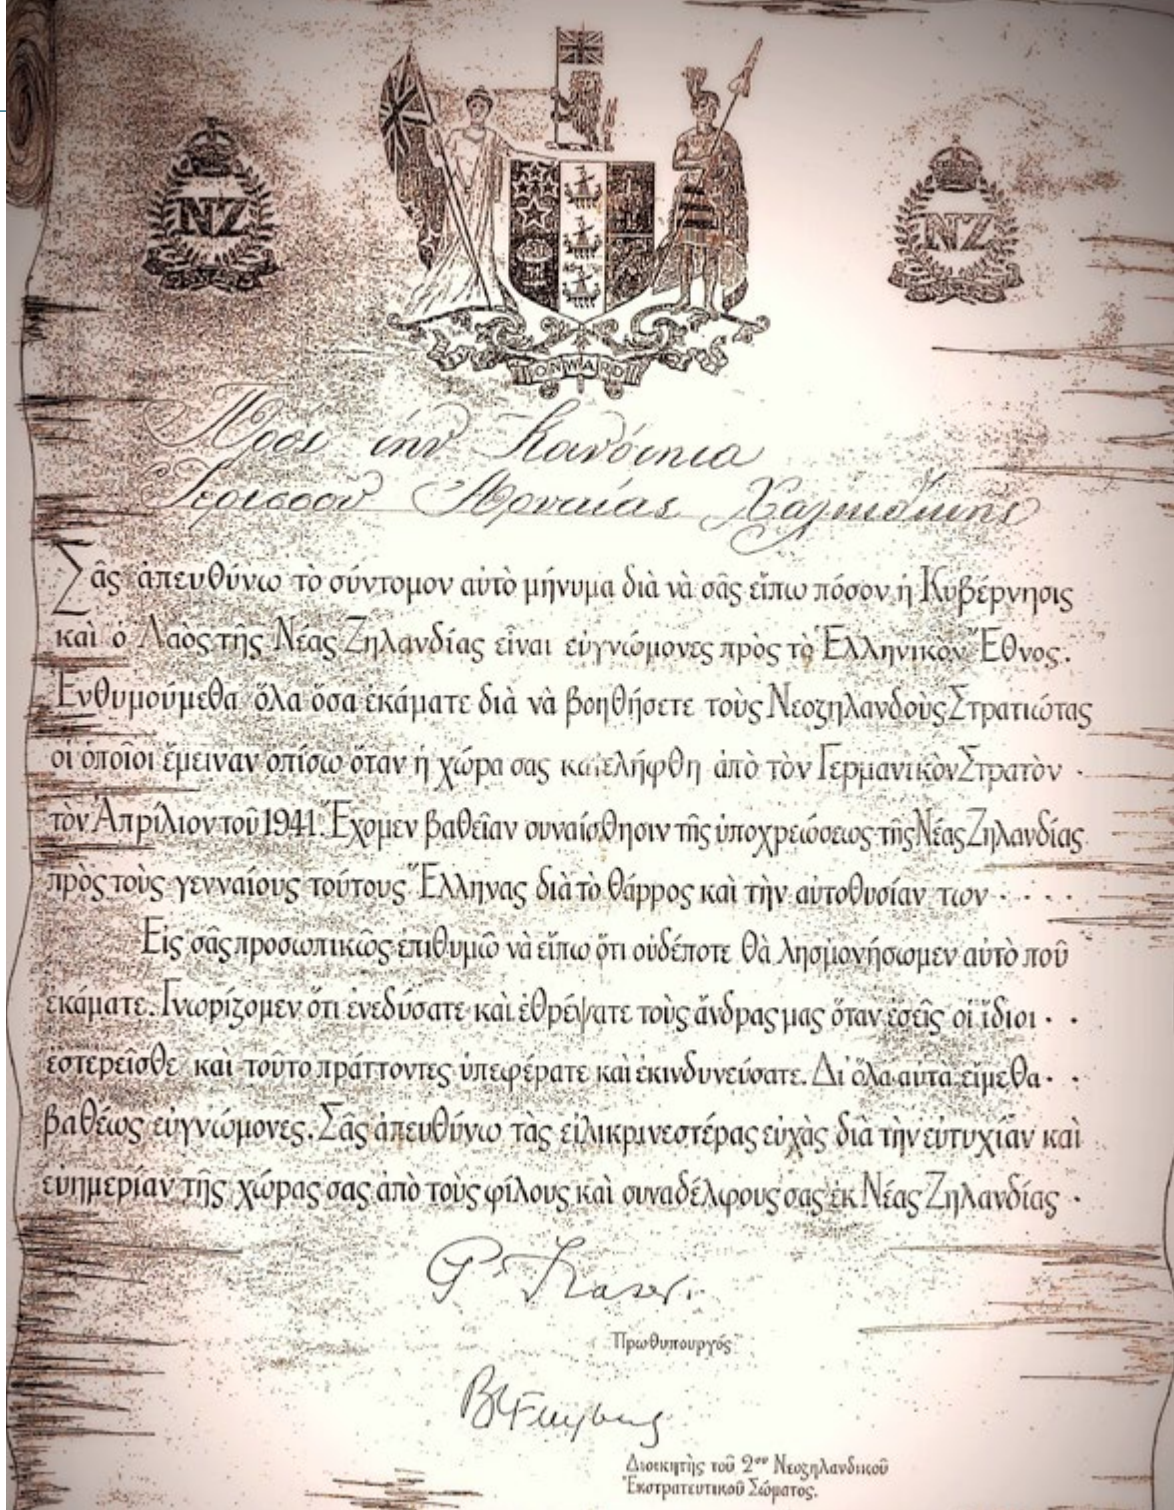 NZ
NZ
ONWARD
Πρὸς τὴν Κοινότητα
Ἱερισσοῦ Ἀρναίας Χαλκιδικῆς
Σᾶς ἀπευθύνω τὸ σύντομον αὐτὸ μήνυμα διὰ νὰ σᾶς εἴπω πόσον ἡ Κυβέρνησις
καὶ ὁ Λαὸς τῆς Νέας Ζηλανδίας εἶναι εὐγνώμονες πρὸς τὸ Ἑλληνικὸν Ἔθνος.
Ἐνθυμούμεθα ὅλα ὅσα ἐκάματε διὰ νὰ βοηθήσετε τοὺς Νεοζηλανδοὺς Στρατιώτας
οἱ ὁποῖοι ἔμειναν ὀπίσω ὅταν ἡ χώρα σας κατελήφθη ἀπὸ τὸν Γερμανικὸν Στρατὸν ·
τὸν Ἀπρίλιον τοῦ 1941. Ἔχομεν βαθεῖαν συναίσθησιν τῆς ὑποχρεώσεως τῆς Νέας Ζηλανδίας
πρὸς τοὺς γενναίους τούτους Ἕλληνας διὰ τὸ θάρρος καὶ τὴν αὐτοθυσίαν των · · · ·
Εἰς σᾶς προσωπικῶς ἐπιθυμῶ νὰ εἴπω ὅτι οὐδέποτε θὰ λησμονήσωμεν αὐτὸ ποῦ
ἐκάματε. Γνωρίζομεν ὅτι ἐνεδύσατε καὶ ἐθρέψατε τοὺς ἄνδρας μας ὅταν ἐσεῖς οἱ ἴδιοι · ·
ἐστερεῖσθε καὶ τοῦτο πράττοντες ὑπεφέρατε καὶ ἐκινδυνεύσατε. Δι ὅλα αὐτὰ εἴμεθα · ·
βαθέως εὐγνώμονες. Σᾶς ἀπευθύνω τὰς εἰλικρινεστέρας εὐχὰς διὰ τὴν εὐτυχίαν καὶ
εὐημερίαν τῆς χώρας σας ἀπὸ τοὺς φίλους καὶ συναδέλφους σας ἐκ Νέας Ζηλανδίας ·
P. Fraser.
Πρωθυπουργός
B C Freyberg
Διοικητὴς τοῦ 2ου Νεοζηλανδικοῦ
Ἐκστρατευτικοῦ Σώματος.